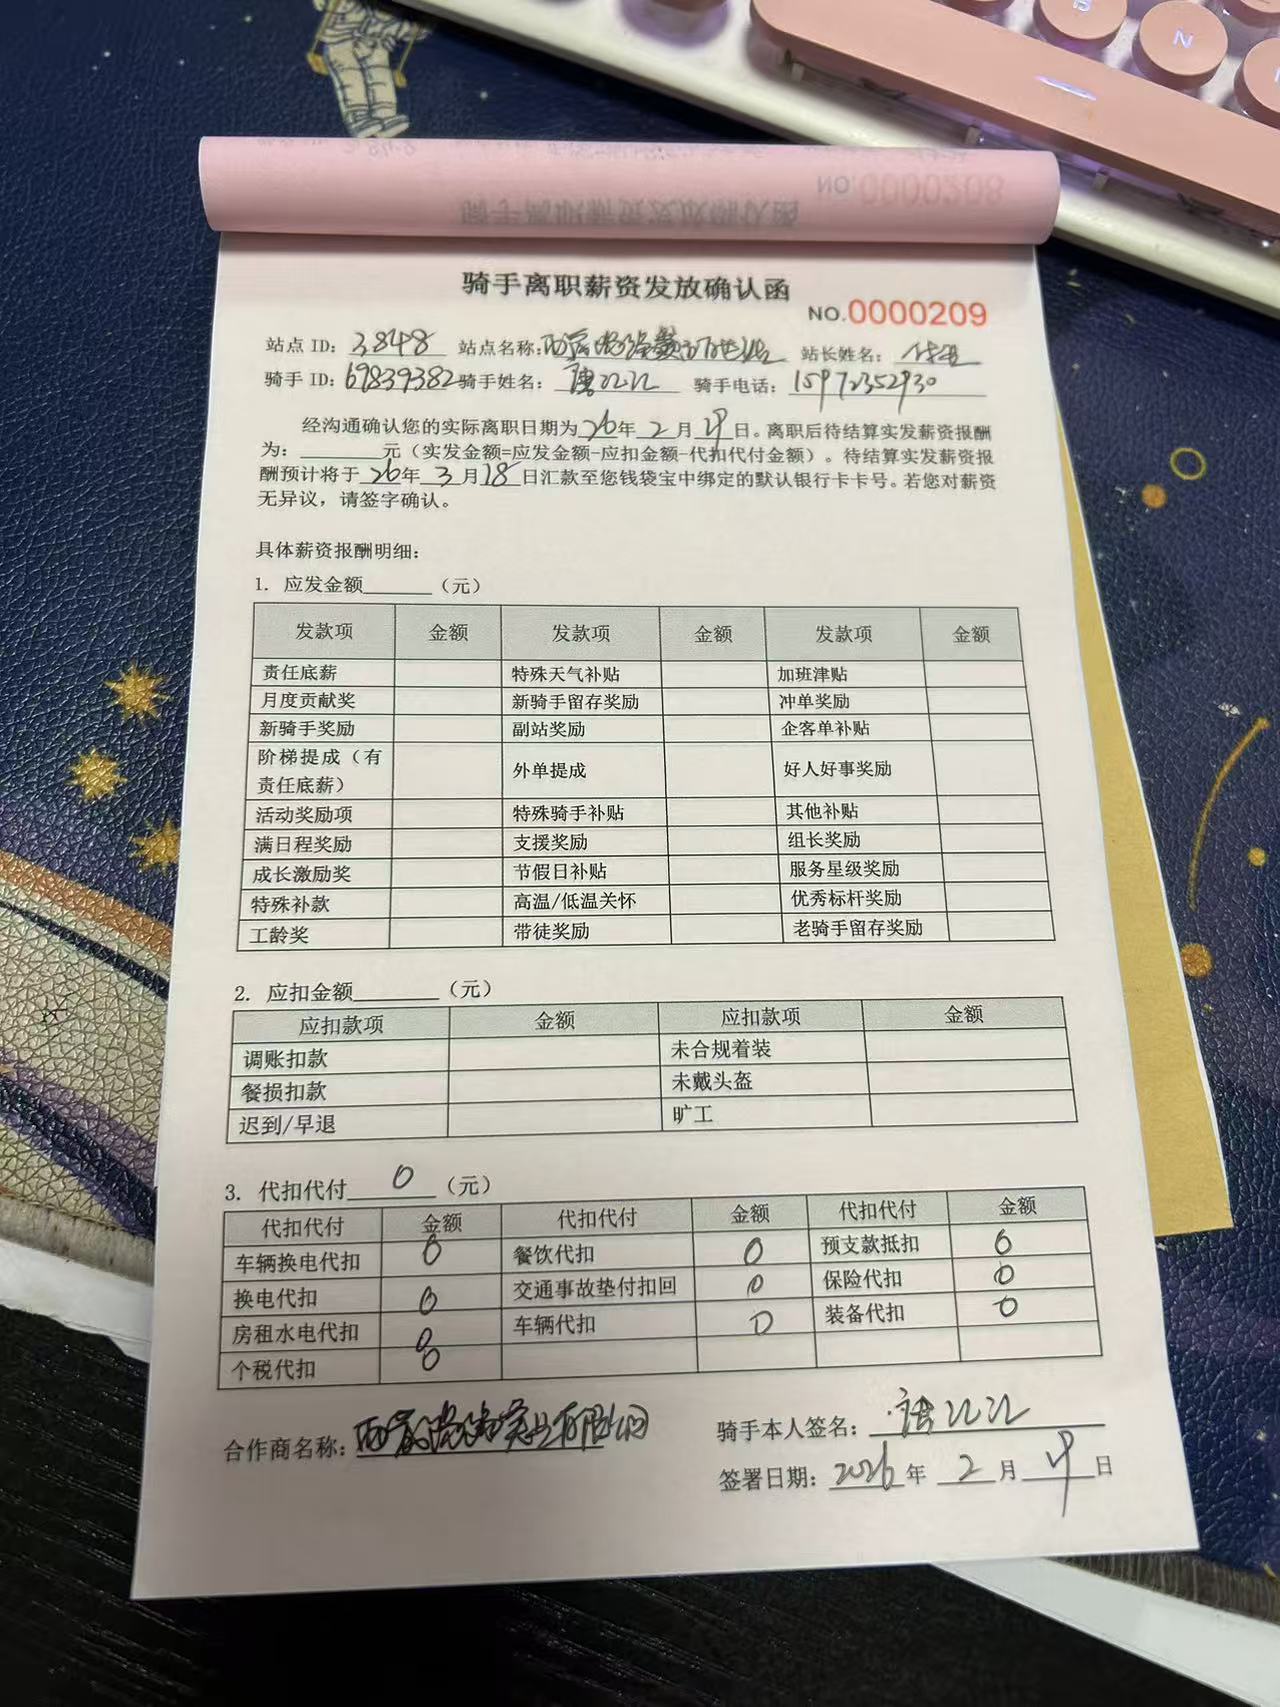 NO.0000208
骑手离职薪资发放确认函
骑手离职薪资发放确认函
NO.0000209
站点 ID: 3848 站点名称: 站长姓名:
骑手 ID: 69839382 骑手姓名: 唐江江 骑手电话: 15972352930
经沟通确认您的实际离职日期为26年2月 日。离职后待结算实发薪资报酬
为: 元（实发金额=应发金额-应扣金额-代扣代付金额）。待结算实发薪资报
酬预计将于26年3月18日汇款至您钱袋宝中绑定的默认银行卡卡号。若您对薪资
无异议，请签字确认。
具体薪资报酬明细:
1. 应发金额 （元）
发款项 金额 发款项 金额 发款项 金额
责任底薪 特殊天气补贴 加班津贴
月度贡献奖 新骑手留存奖励 冲单奖励
新骑手奖励 副站奖励 企客单补贴
阶梯提成（有责任底薪） 外单提成 好人好事奖励
活动奖励项 特殊骑手补贴 其他补贴
满日程奖励 支援奖励 组长奖励
成长激励奖 节假日补贴 服务星级奖励
特殊补款 高温/低温关怀 优秀标杆奖励
工龄奖 带徒奖励 老骑手留存奖励
2. 应扣金额 （元）
应扣款项 金额 应扣款项 金额
调账扣款 未合规着装
餐损扣款 未戴头盔
迟到/早退 旷工
3. 代扣代付 0 （元）
代扣代付 金额 代扣代付 金额 代扣代付 金额
车辆换电代扣 0 餐饮代扣 0 预支款抵扣 0
换电代扣 0 交通事故垫付扣回 0 保险代扣 0
房租水电代扣 0 车辆代扣 0 装备代扣 0
个税代扣 0
合作商名称: 有限公司 骑手本人签名: 唐江江
签署日期: 2026年 2 月 日
N
B